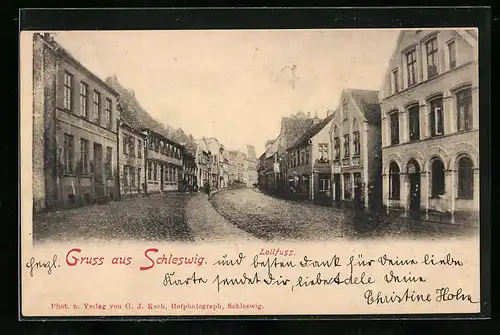 Gruss aus Schleswig.
Lollfuss.
Herzl. und besten Dank für Deine liebe
Karte sendet Dir, liebe Adele deine
Christine Holm
Phot. u. Verlag von G. J. Koch, Hofphotograph, Schleswig.